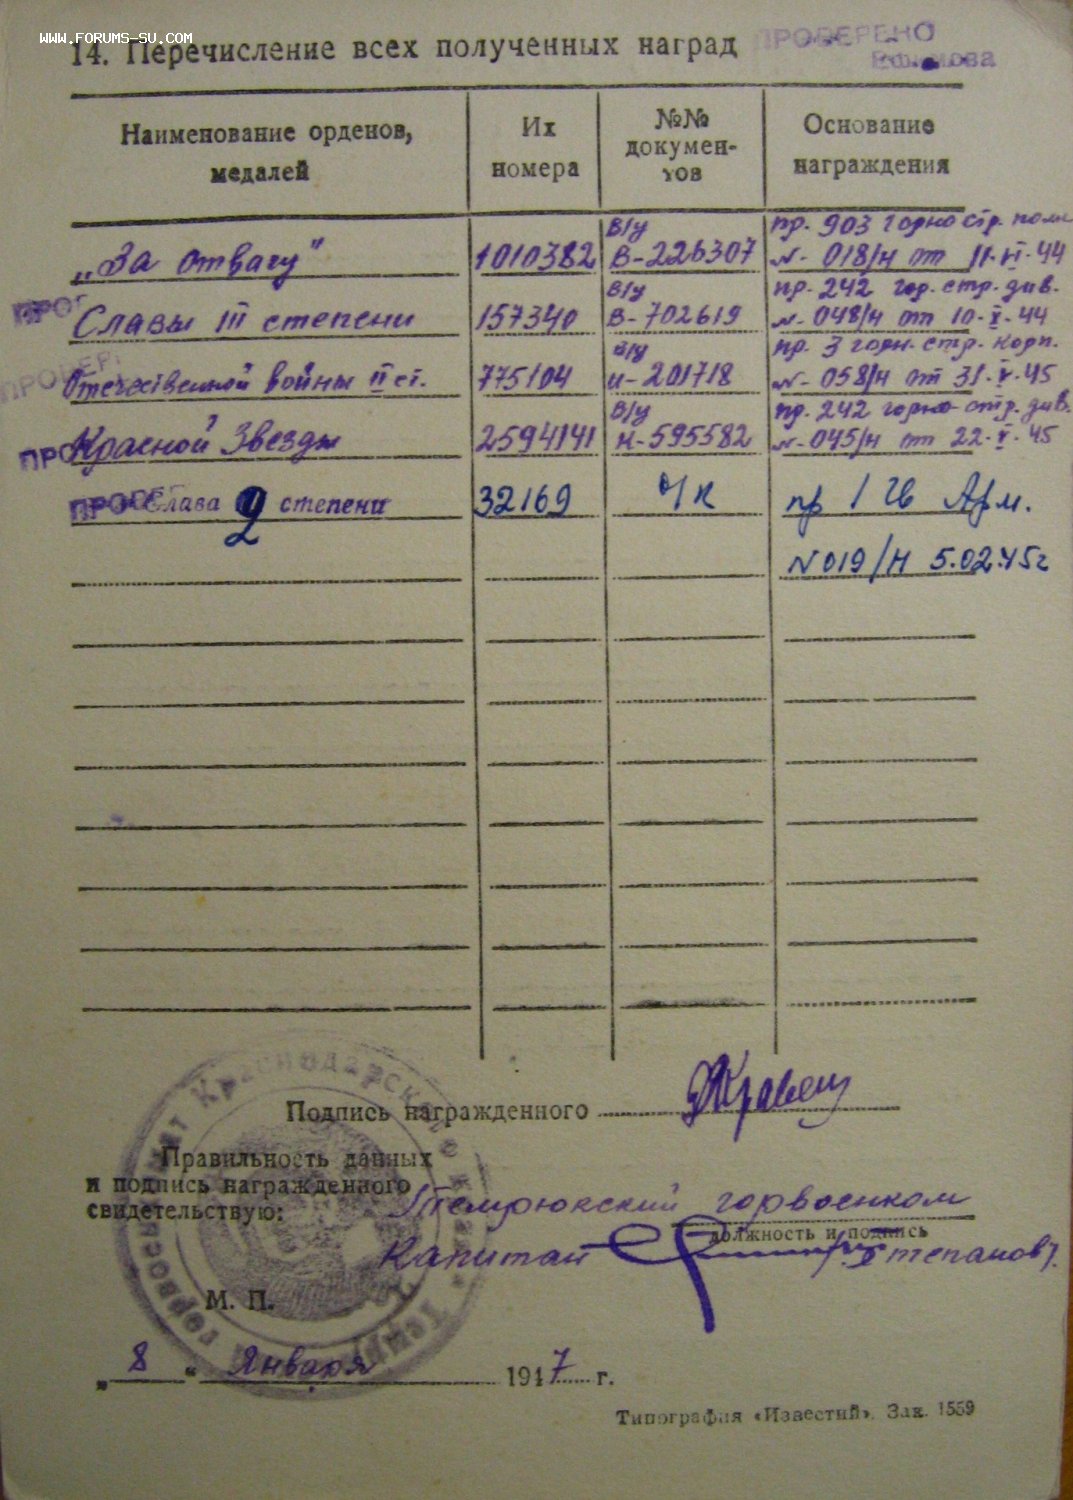 www.forums-su.com
14. Перечисление всех полученных наград
ПРОВЕРЕНО
Наименование орденов, медалей
Их номера
№№ докумен-тов
Основание награждения
„За отвагу" 1010382 В/у В-226307 пр. 903 горно стр. полк N- 018/н от 11-VI-44
Славы III степени 157340 В/у В-702619 пр. 242 гор. стр. див. N- 048/н от 10-X-44
Отечественной войны II ст. 775104 В/у И-201718 пр. 3 горн. стр. корп. N- 058/н от 31-V-45
Красной Звезды 2594141 В/у Н-595582 пр. 242 горно стр. див. N-045/н от 22-V-45
Слава 2 степени 32169 О/к пр 1 Гв Арм.
N 019/н 5.02.45г
Подпись награжденного
Правильность данных
и подпись награжденного
свидетельствую:
Темрюкский горвоенком
должность и подпись
Капитан /Степанов/.
М. П.
„8" Января 1947 г.
Типография «Известий». Зак. 1559